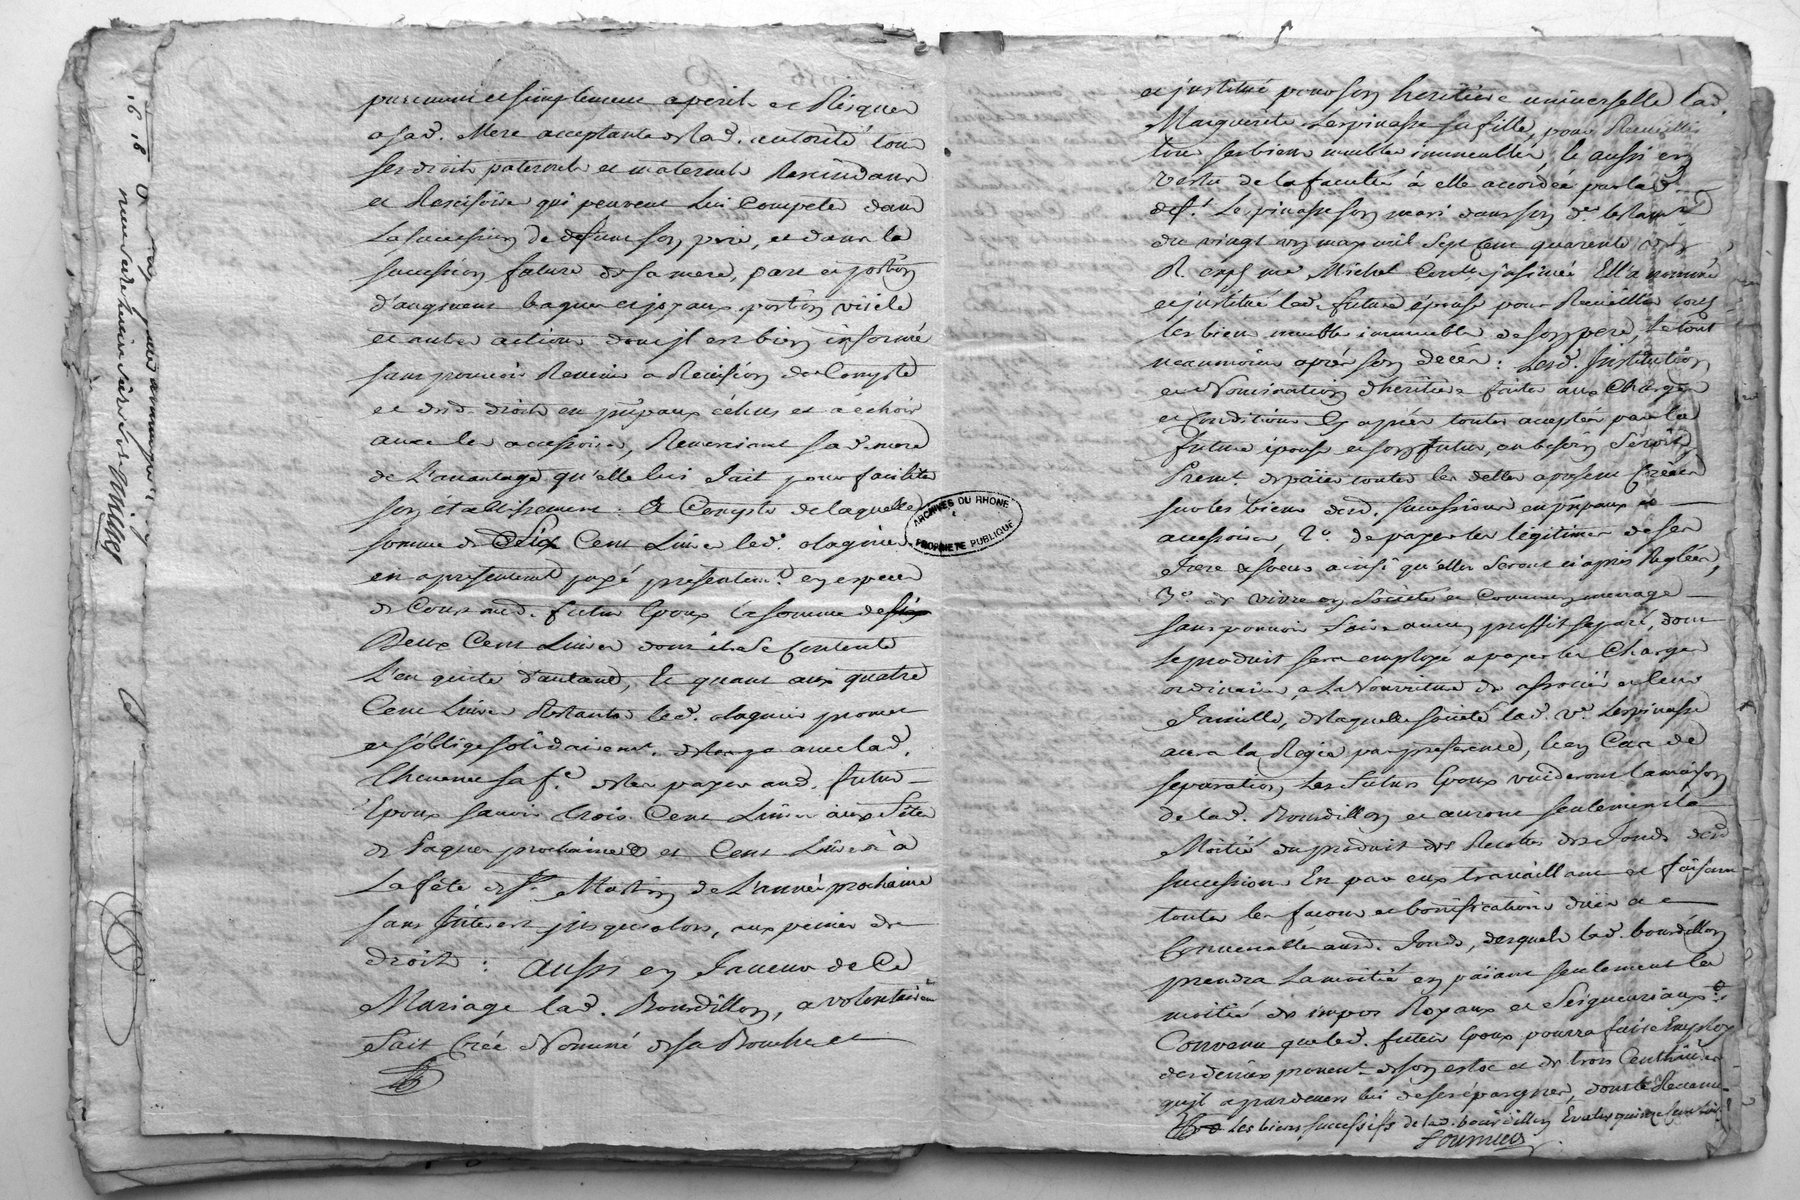 purement et simplement a peril et Risques
a sad. Mere acceptante de lad. autorité tous
ses droits paternels et maternels Rescindans
et Rescisoires qui peuvent lui Competer dans
La succession de defunt son pere, et dans la
succession future de sa mere, part et portion
d'augment bagues et joyaux, portion virile
et autres actions dont jl est bien informé
sans pouvoir Revenir a Revision de Compte
et desd. droits en ppaux échus et a échoir
avec les accessoires, Remerciant sad. mere
de L'avantage qu'elle lui fait pour faciliter
son établissement : A Compte de laquelle
somme de Six Cent Livres led. olagnier
en a presentement payé presentemt en especes
de Cours aud. futur Epoux la somme de six
Deux Cent Livres dont il se Contente
L'en quitte d'autant, Et quant aux quatre
Cent Livres Restantes led. olagnier promet
et s'oblige solidairemt avec lad.
Thevenet sa fe. de les payer aud. futur
Epoux savoir trois Cent Livres aux fêtes
de Paques prochaines et Cent Livres à
La fête de St. Martin de L'année prochaine
sans Interest jusqu'alors, aux peines de
droit : aussi en faveur de Ce
Mariage lad. Bourdillon, a volontairemt
fait Créé Nommé de sa Bouche et
et jnstitué pour son heritiere universelle lad.
Marguerite Lespinasse sa fille, pour Recueillir
tous ses biens meubles immeubles, Et aussi en
vertu de la faculté à elle accordée par led.
deft. Lespinasse son mari dans son dr. testamt.
du vingt un may mil sept Cent quarante
R. me Michel jnsinué Ell'a nommé
et jnstitué lad. future épouse pour Recueillir tous
les biens meubles immeubles de son pere, Le tout
neanmoins après son decés : Lesd. Institution
et Nomination d'heritiere faites aux Charges
et Conditions Cy après toutes acceptées par la
future épouse et son futur, au besoin seroit
Premt. de païer toutes les dettes a present Créées
sur les biens desd. successions en ppaux et
accessoires, 2o. de payer les légitimes de ses
frere & soeurs ainsi qu'elles seront ci après Reglées,
3o. de vivre en Société et Commun menage
sans pouvoir faire aucun proffit separé, dont
le produit sera employé a payer les Charges
ordinaires, a La Nourriture des associés et leur
famille, de laquelle société lad. ve. Lespinasse
aura la Regie par preference, Et en Cas de
separation Les futurs Epoux vuideront la maison
de lad. Bourdillon et auront seulement la
Moitié du produit des Recoltes des fonds desd.
successions En par eux travaillant et faisant
toutes les façons et bonifications dües et
Convenables auxd. fonds, desquels lad. bourdillon
prendra La moitié en païant seulement la
moitié des impos Royaux et Seigneuriaux :
Convenu que led. futur Epoux pourra faire Employ
des deniers provent. de son estoc et de trois Cent livres
qu'jl a pardevers lui de ses épargnes, dont
Les biens successifs de lad. bourdillon Evalués quinze Cent Liv.
fournier
ARCHIVES DU RHONE
PROPRIETE PUBLIQUE